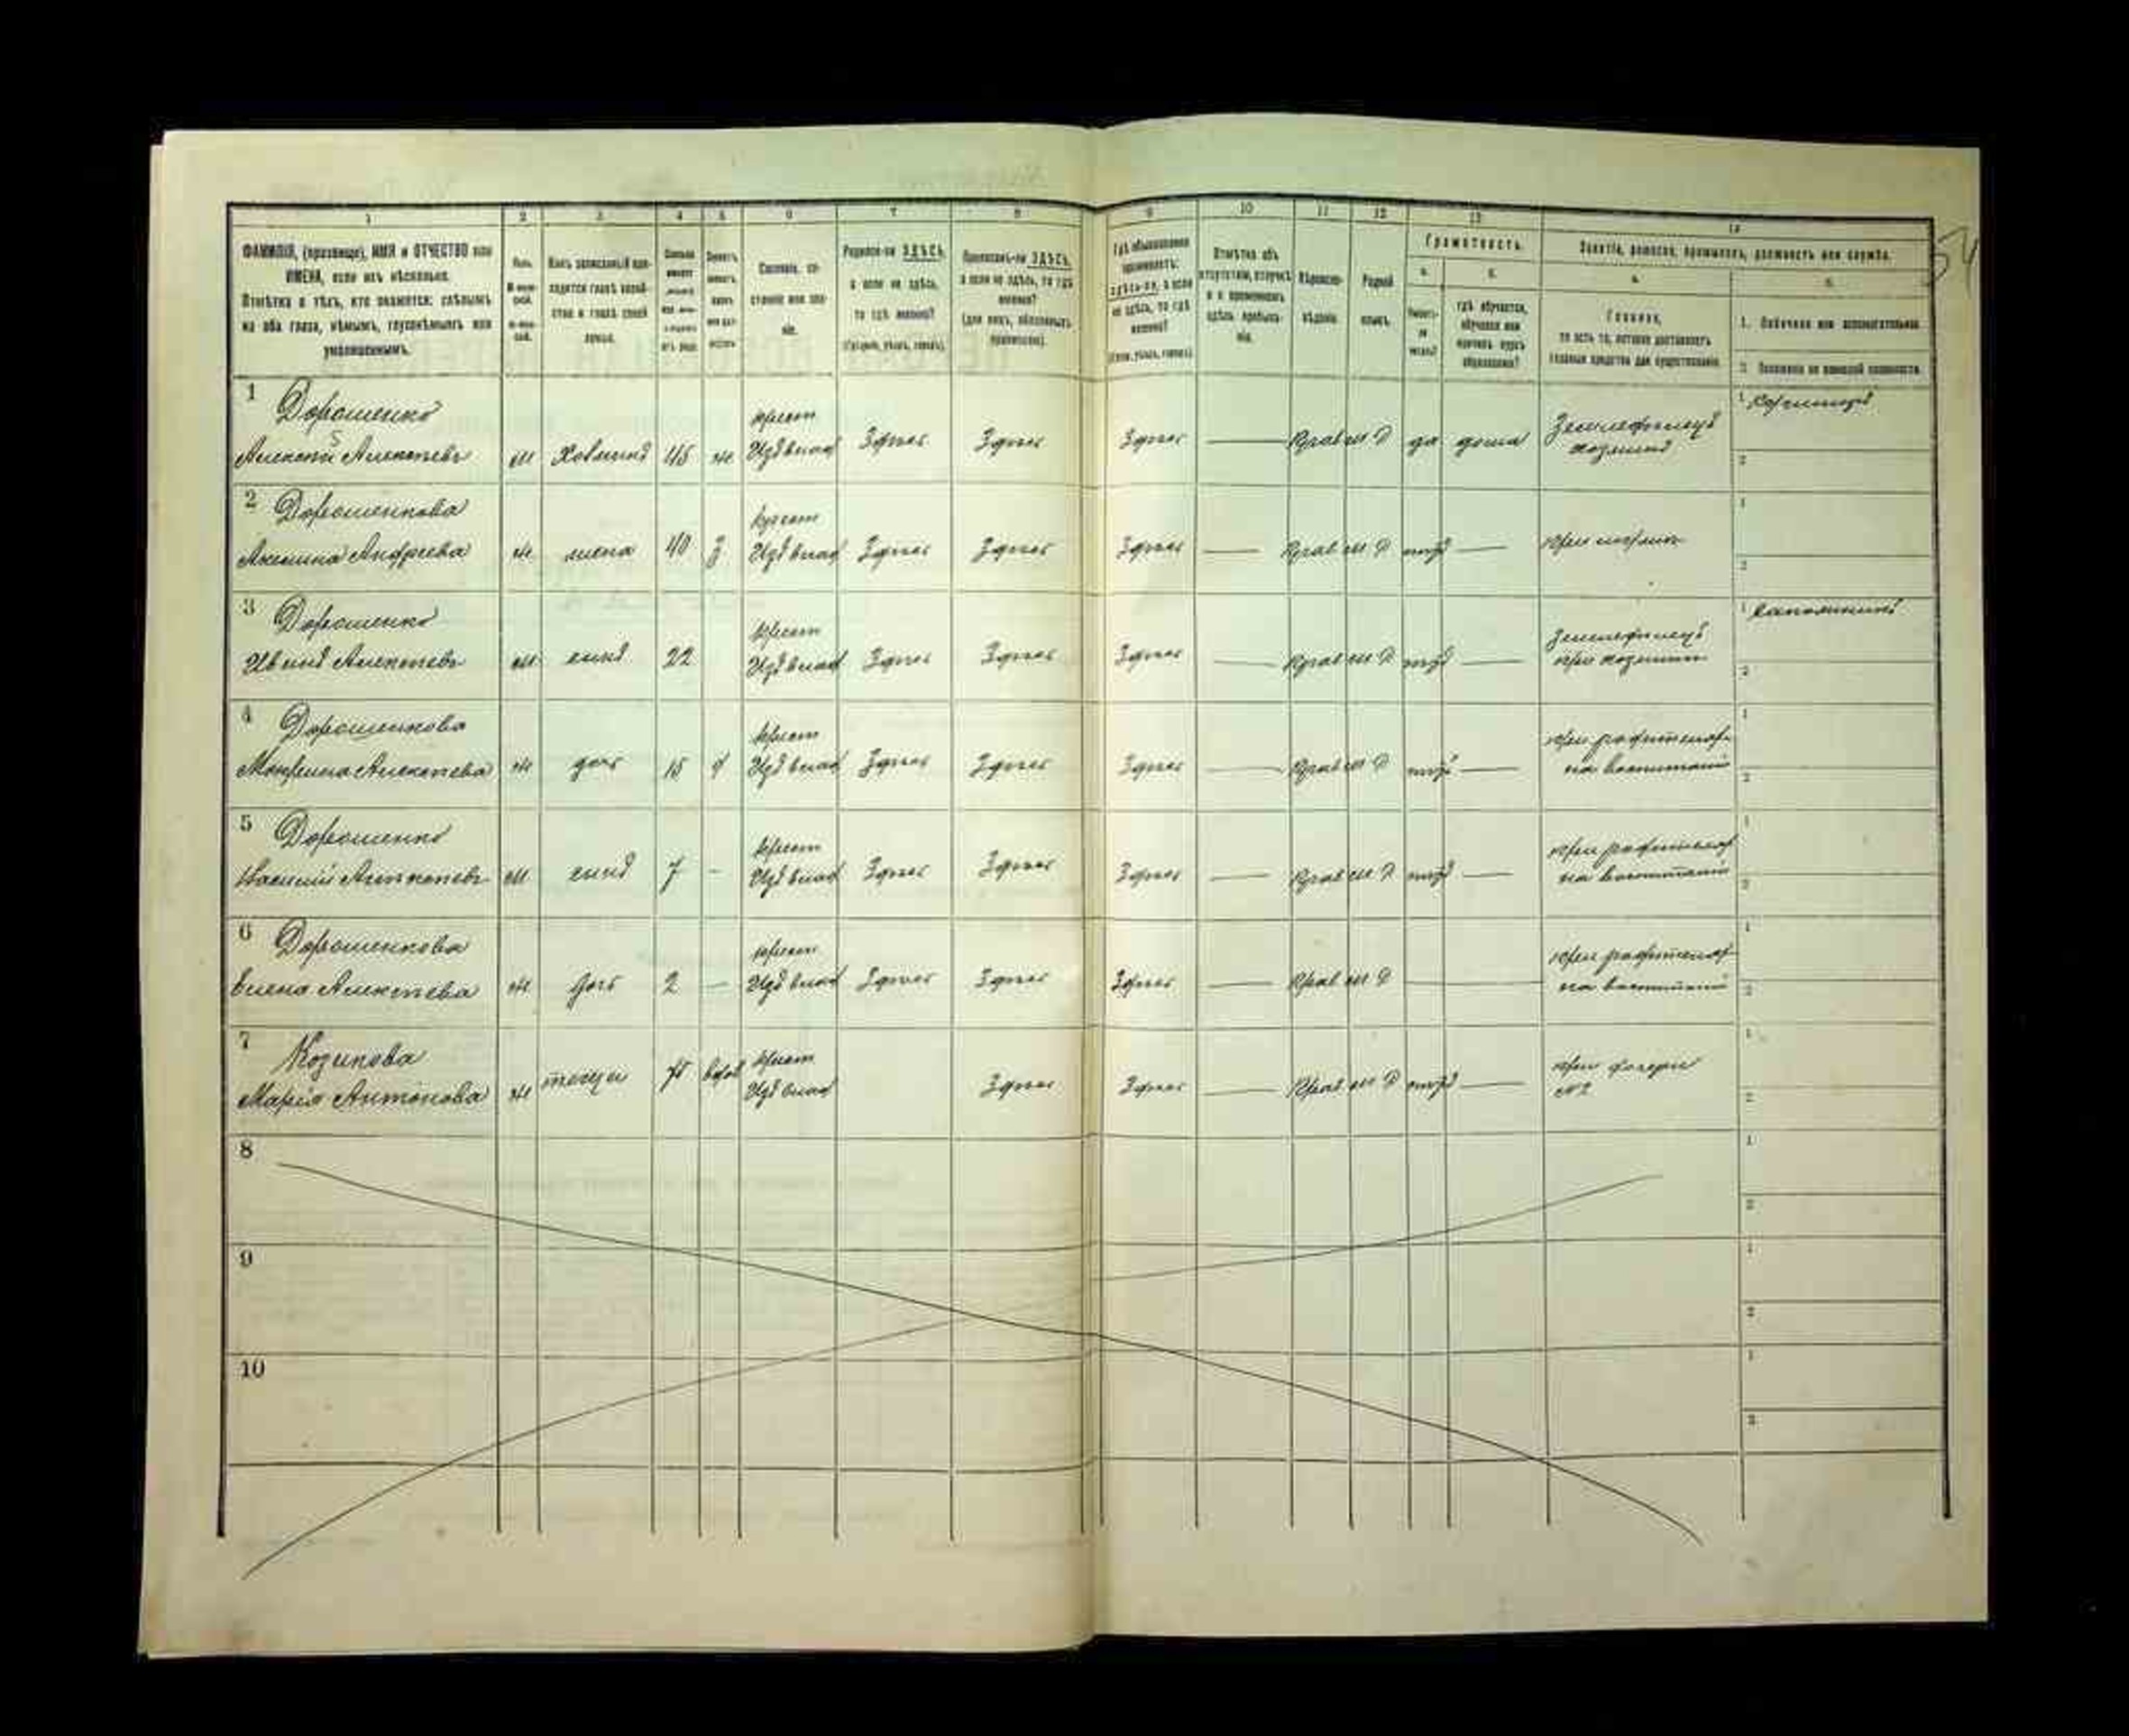 1 2 3 4 5 6 7 8 9 10 11 12 13 14
54
ФАМИЛІЯ, (прозвище), ИМЯ и ОТЧЕСТВО или
ИМЕНА, если ихъ нѣсколько.
Отмѣтка о тѣхъ, кто окажется: слѣпымъ
на оба глаза, нѣмымъ, глухонѣмымъ или
умалишеннымъ.
Полъ.
Какъ записанный при-
ходится главѣ хозяй-
ства и главѣ своей
семьи.
Сословіе, со-
стояніе или зва-
ніе.
Родился-ли ЗДѢСЬ,
а если не здѣсь,
то гдѣ именно?
(Губернія, уѣздъ, городъ).
Приписанъ-ли ЗДѢСЬ,
а если не здѣсь, то гдѣ
именно?
(для лицъ, обязанныхъ
припискою).
Гдѣ обыкновенно
проживаетъ:
здѣсь-ли, а если
не здѣсь, то гдѣ
именно?
(Губ., уѣздъ, городъ).
Отмѣтка объ
отсутствіи, отлучкѣ
и о временномъ
здѣсь пребыва-
ніи.
Вѣроиспо-
вѣданіе.
Родной
языкъ.
Грамотность.
а.
Умѣетъ-
ли
читать?
б.
гдѣ обучается,
обучался или
кончилъ курсъ
образованія?
Занятіе, ремесло, промыселъ, должность или служба.
а.
Главное,
то есть то, которое доставляетъ
главныя средства для существованія.
б.
1. Побочное или вспомогательное.
2. Положеніе по воинской повинности.
1 Дорошенко крест
Алексѣй Алексѣевъ м Хозяинъ 45 ж Изъ влад Здѣсь Здѣсь Здѣсь — Прав м р да дома Земледѣлецъ
хозяинъ
1
2
2 Дорошенкова крест
Андреева ж жена 40 з Изъ влад Здѣсь Здѣсь Здѣсь — Прав м р — при мужѣ
1
2
3 Дорошенко крест
Иванъ Алексѣевъ м сынъ 22 Изъ влад Здѣсь Здѣсь Здѣсь — Прав м р — Земледѣлецъ
при хозяинѣ
1
2
4 Дорошенкова крест
Алексѣева ж дочь 15 д Изъ влад Здѣсь Здѣсь Здѣсь — Прав м р — при родителяхъ
на воспитаніи
1
2
5 Дорошенко крест
Василій Алексѣевъ м сынъ 7 - Изъ влад Здѣсь Здѣсь Здѣсь — Прав м р — при родителяхъ
на воспитаніи
1
2
6 Дорошенкова крест
Елена Алексѣева ж дочь 2 — Изъ влад Здѣсь Здѣсь Здѣсь — Прав м р — при родителяхъ
на воспитаніи
1
2
7 Козинова крест
Марія Антонова ж теща вдов Изъ влад Здѣсь Здѣсь — Прав м р — при дочери
№2
1
2
8
1
2
9
1
2
10
1
2